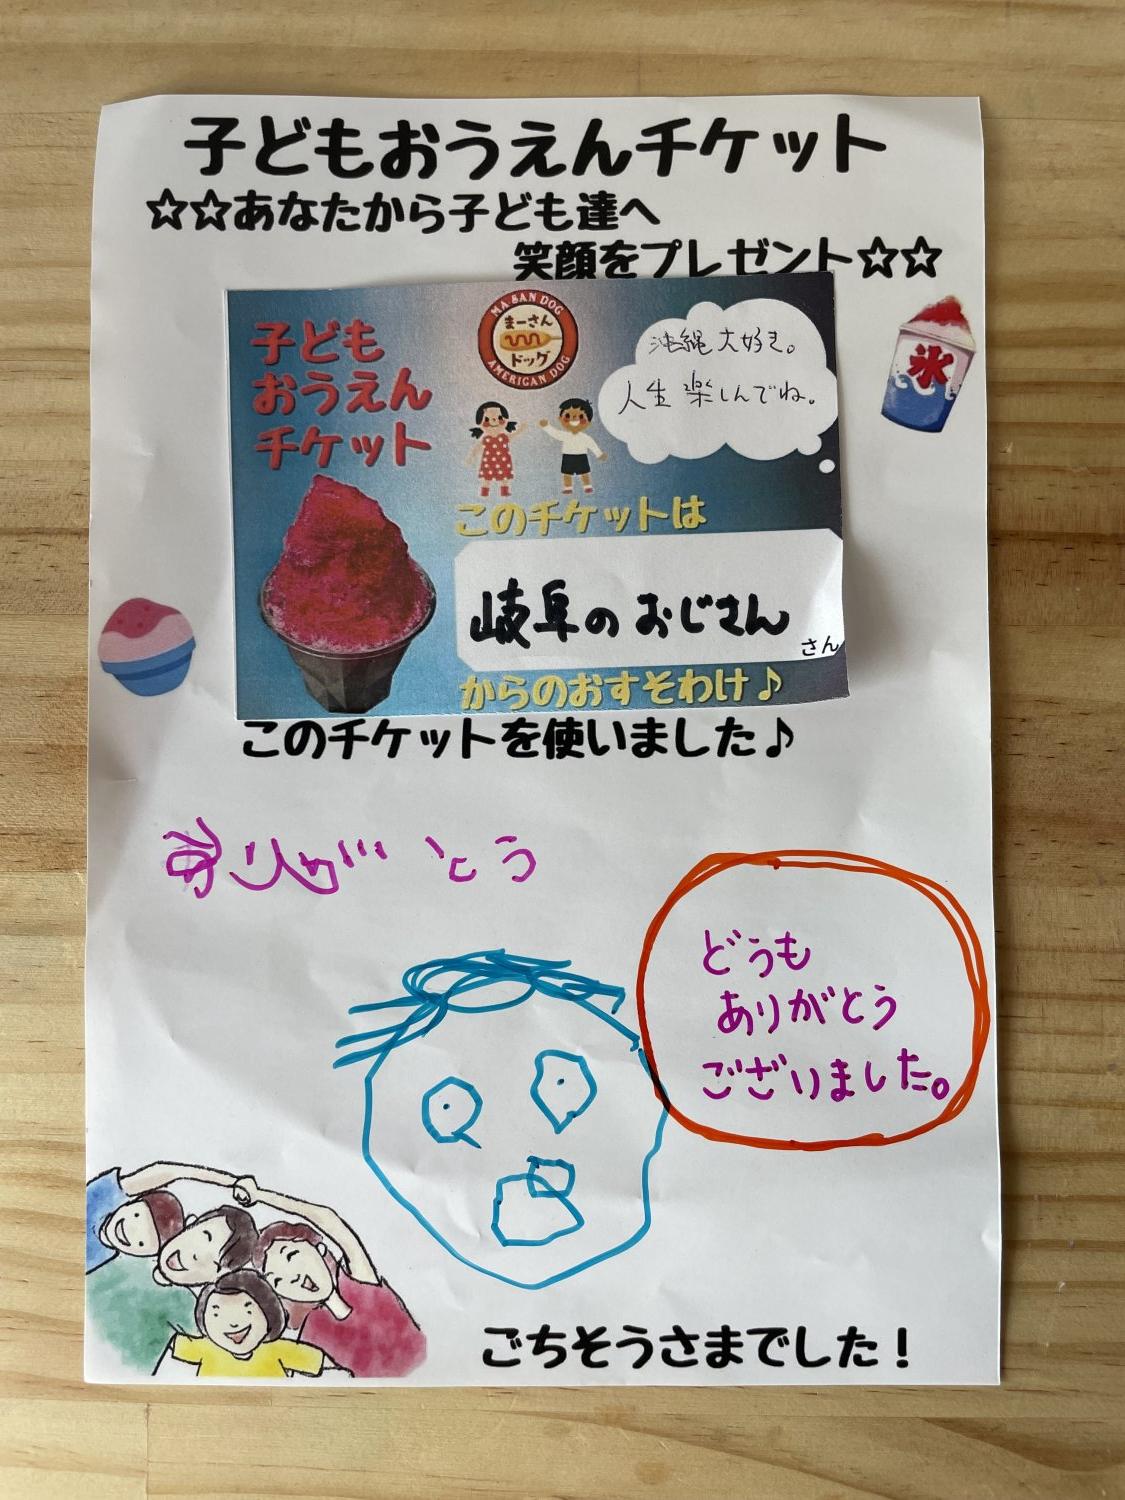 子どもおうえんチケット
☆☆あなたから子ども達へ
笑顔をプレゼント☆☆
子ども
おうえん
チケット
MA SAN DOG
まーさん
ドッグ
AMERICAN DOG
沖縄大好き。
人生楽しんでね。
氷
このチケットは
岐阜のおじさん
さん
からのおすそわけ♪
このチケットを使いました♪
ありがとう
どうも
ありがとう
ございました。
ごちそうさまでした！